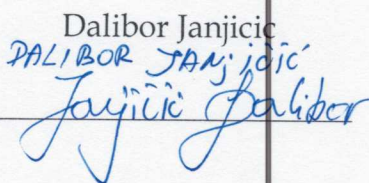 Dalibor Janjicic
DALIBOR JANJIČIĆ
Janjičić Dalibor